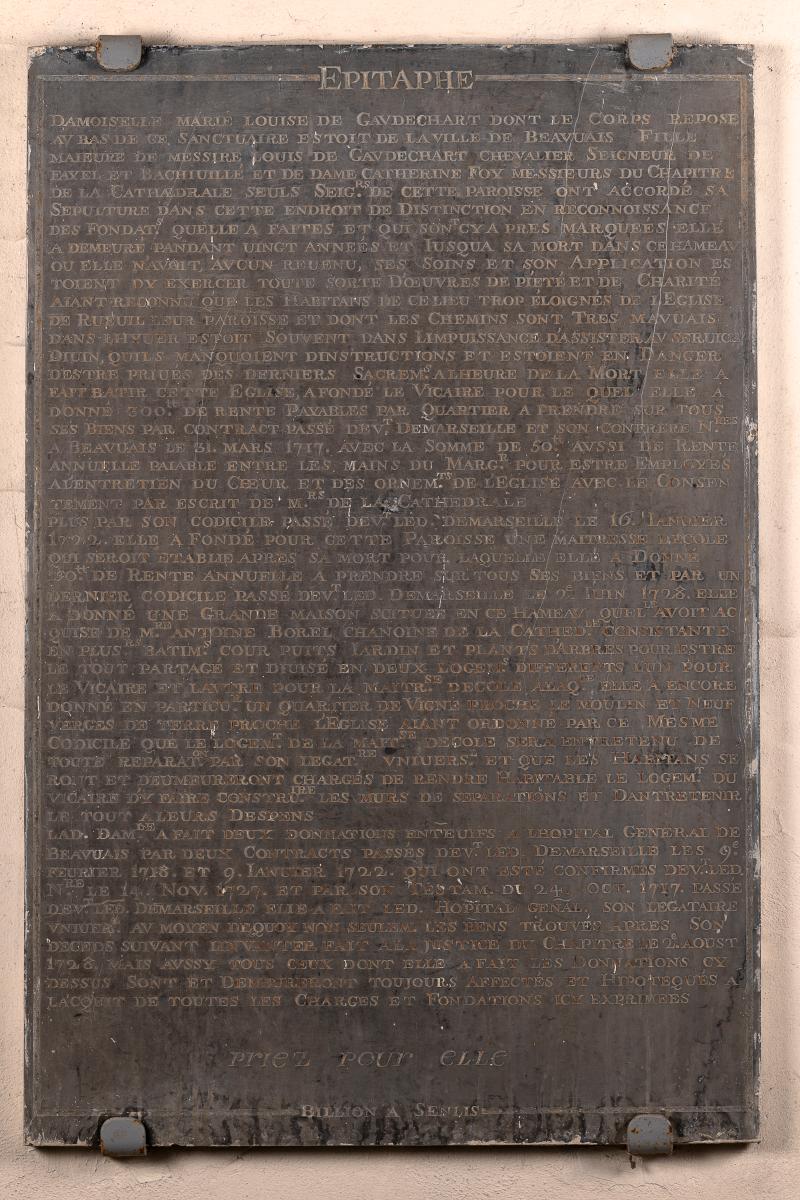 EPITAPHE
DAMOISELLE MARIE LOUISE DE GAVDECHART DONT LE CORPS REPOSE
AV BAS DE CE SANCTUAIRE ESTOIT DE LA VILLE DE BEAVUAIS FILLE
MAIEURE DE MESSIRE LOUIS DE GAVDECHART CHEVALIER SEIGNEUR DE
FAYEL ET BACHIUILLE ET DE DAME CATHERINE FOY MESSIEURS DU CHAPITRE
DE LA CATHÆDRALE SEULS SEIG.RS DE CETTE PAROISSE ONT ACCORDÉ SA
SEPULTURE DANS CETTE ENDROIT DE DISTINCTION EN RECONNOISSANCE
DES FONDAT.S QUELLE A FAITES ET QUI SONT CY APRES MARQUEES ELLE
A DEMEURÉ PANDANT UINGT ANNÉES ET IUSQUA SA MORT DANS CE HAMEAV
OU ELLE NAVOIT AVCUN REUENU, SES SOINS ET SON APPLICATION ES
TOIENT DY EXERCER TOUTE SORTE D'OEUVRES DE PIETÉ ET DE CHARITÉ
AIANT RECONNU QUE LES HABITANS DE CE LIEU TROP ELOIGNÉS DE L'EGLISE
DE RUEUIL LEUR PAROISSE ET DONT LES CHEMINS SONT TRES MAVUAIS
DANS LHYUER ESTOIT SOUVENT DANS LIMPUISSANCE DASSISTER AV SERUICE
DIUIN, QUILS MANQUOIENT DINSTRUCTIONS ET ESTOIENT EN DANGER
DESTRE PRIUÉS DES DERNIERS SACREM.S A LHEURE DE LA MORT ELLE A
FAIT BATIR CETTE EGLISE, A FONDÉ LE VICAIRE POUR LE QUEL ELLE A
DONNÉ 300.tt DE RENTE PAYABLES PAR QUARTIER A PRENDRE SUR TOUS
SES BIENS PAR CONTRACT PASSÉ DEV.T DEMARSEILLE ET SON CONFRERE N.RES
A BEAVUAIS LE 31. MARS 1717. AVEC LA SOMME DE 50.tt AVSSI DE RENTE
ANNUELLE PAIABLE ENTRE LES MAINS DU MARG.R POUR ESTRE EMPLOYÉS
A L'ENTRETIEN DU CHŒUR ET DES ORNEM.TS DE L'EGLISE AVEC LE CONSEN
TEMENT PAR ESCRIT DE M.RS DE LA CATHEDRALE
PLUS PAR SON CODICILE PASSÉ DEV.T LED. DEMARSEILLE LE 16. IANUIER
1722. ELLE A FONDÉ POUR CETTE PAROISSE UNE MAITRESSE DECOLE
QUI SEROIT ETABLIE APRES SA MORT POUR LAQUELLE ELLE A DONNÉ
DE RENTE ANNUELLE A PRENDRE SUR TOUS SES BIENS ET PAR UN
DERNIER CODICILE PASSÉ DEV.T LED. DEMARSEILLE LE 2.E IUIN 1728. ELLE
A DONNÉ UNE GRANDE MAISON SCITUÉE EN CE HAMEAV, QUELLE AVOIT AC
QUISE DE M.RE ANTOINE BOREL CHANOINE DE LA CATHED.LE CONSISTANTE
EN PLUS.RS BATIM.S COUR PUITS IARDIN ET PLANTS D'ARBRES POUR ESTRE
LE TOUT PARTAGÉ ET DIUISÉ EN DEUX LOGEM.S DIFFERENTS LUN POUR
LE VICAIRE ET LAVTRE POUR LA MAITR.SE DECOLE A LAQ.LE ELLE A ENCORE
DONNÉ EN PARTICU.R UN QUARTIER DE VIGNE PROCHE LE MOULIN ET NEUF
VERGES DE TERRE PROCHE L'EGLISE AIANT ORDONNÉ PAR CE MESME
CODICILE QUE LE LOGEM.T DE LA MAIT.SE DECOLE SERA ENTRETENU DE
TOUTE REPARAT.ON PAR SON LEGAT.RE VNIUERS. ET QUE LES HABITANS SE
RONT ET DEUMEURERONT CHARGÉS DE RENDRE HABITABLE LE LOGEM.T DU
VICAIRE DY FAIRE CONSTRU.IRE LES MURS DE SEPARATIONS ET DANTRETENIR
LE TOUT A LEURS DESPENS
LAD. DAM.LE A FAIT DEUX DONNATIONS ENTEUIFS A LHOPITAL GENERAL DE
BEAVUAIS PAR DEUX CONTRACTS PASSÉS DEV.T LED. DEMARSEILLE LES 9.e
FEURIER 1718. ET 9. IANUIER 1722. QUI ONT ESTÉ CONFIRMÉS DEV.T LED.
N.RE LE 14. NOV. 1727. ET PAR SON TESTAM. DU 24. OCT. 1717. PASSÉ
DEV.T LED. DEMARSEILLE ELLE A FAIT LED. HOPITAL GENAL. SON LEGATAIRE
VNIUER. AV MOYEN DEQUOY NON SEULEM. LES BIENS TROUVÉS APRES SON
DECEDS SUIVANT LINVANTER. FAIT A LA JUSTICE DU CHAPITRE LE 2. AOUST
1728, MAIS AVSSY TOUS CEUX DONT ELLE A FAIT LES DONNATIONS CY
DESSUS SONT ET DEMEURERONT TOUJOURS AFFECTÉS ET HIPOTEQUÉS A
LACQUIT DE TOUTES LES CHARGES ET FONDATIONS ICY EXPRIMÉES
PRIEZ POUR ELLE
BILLION A SENLIS